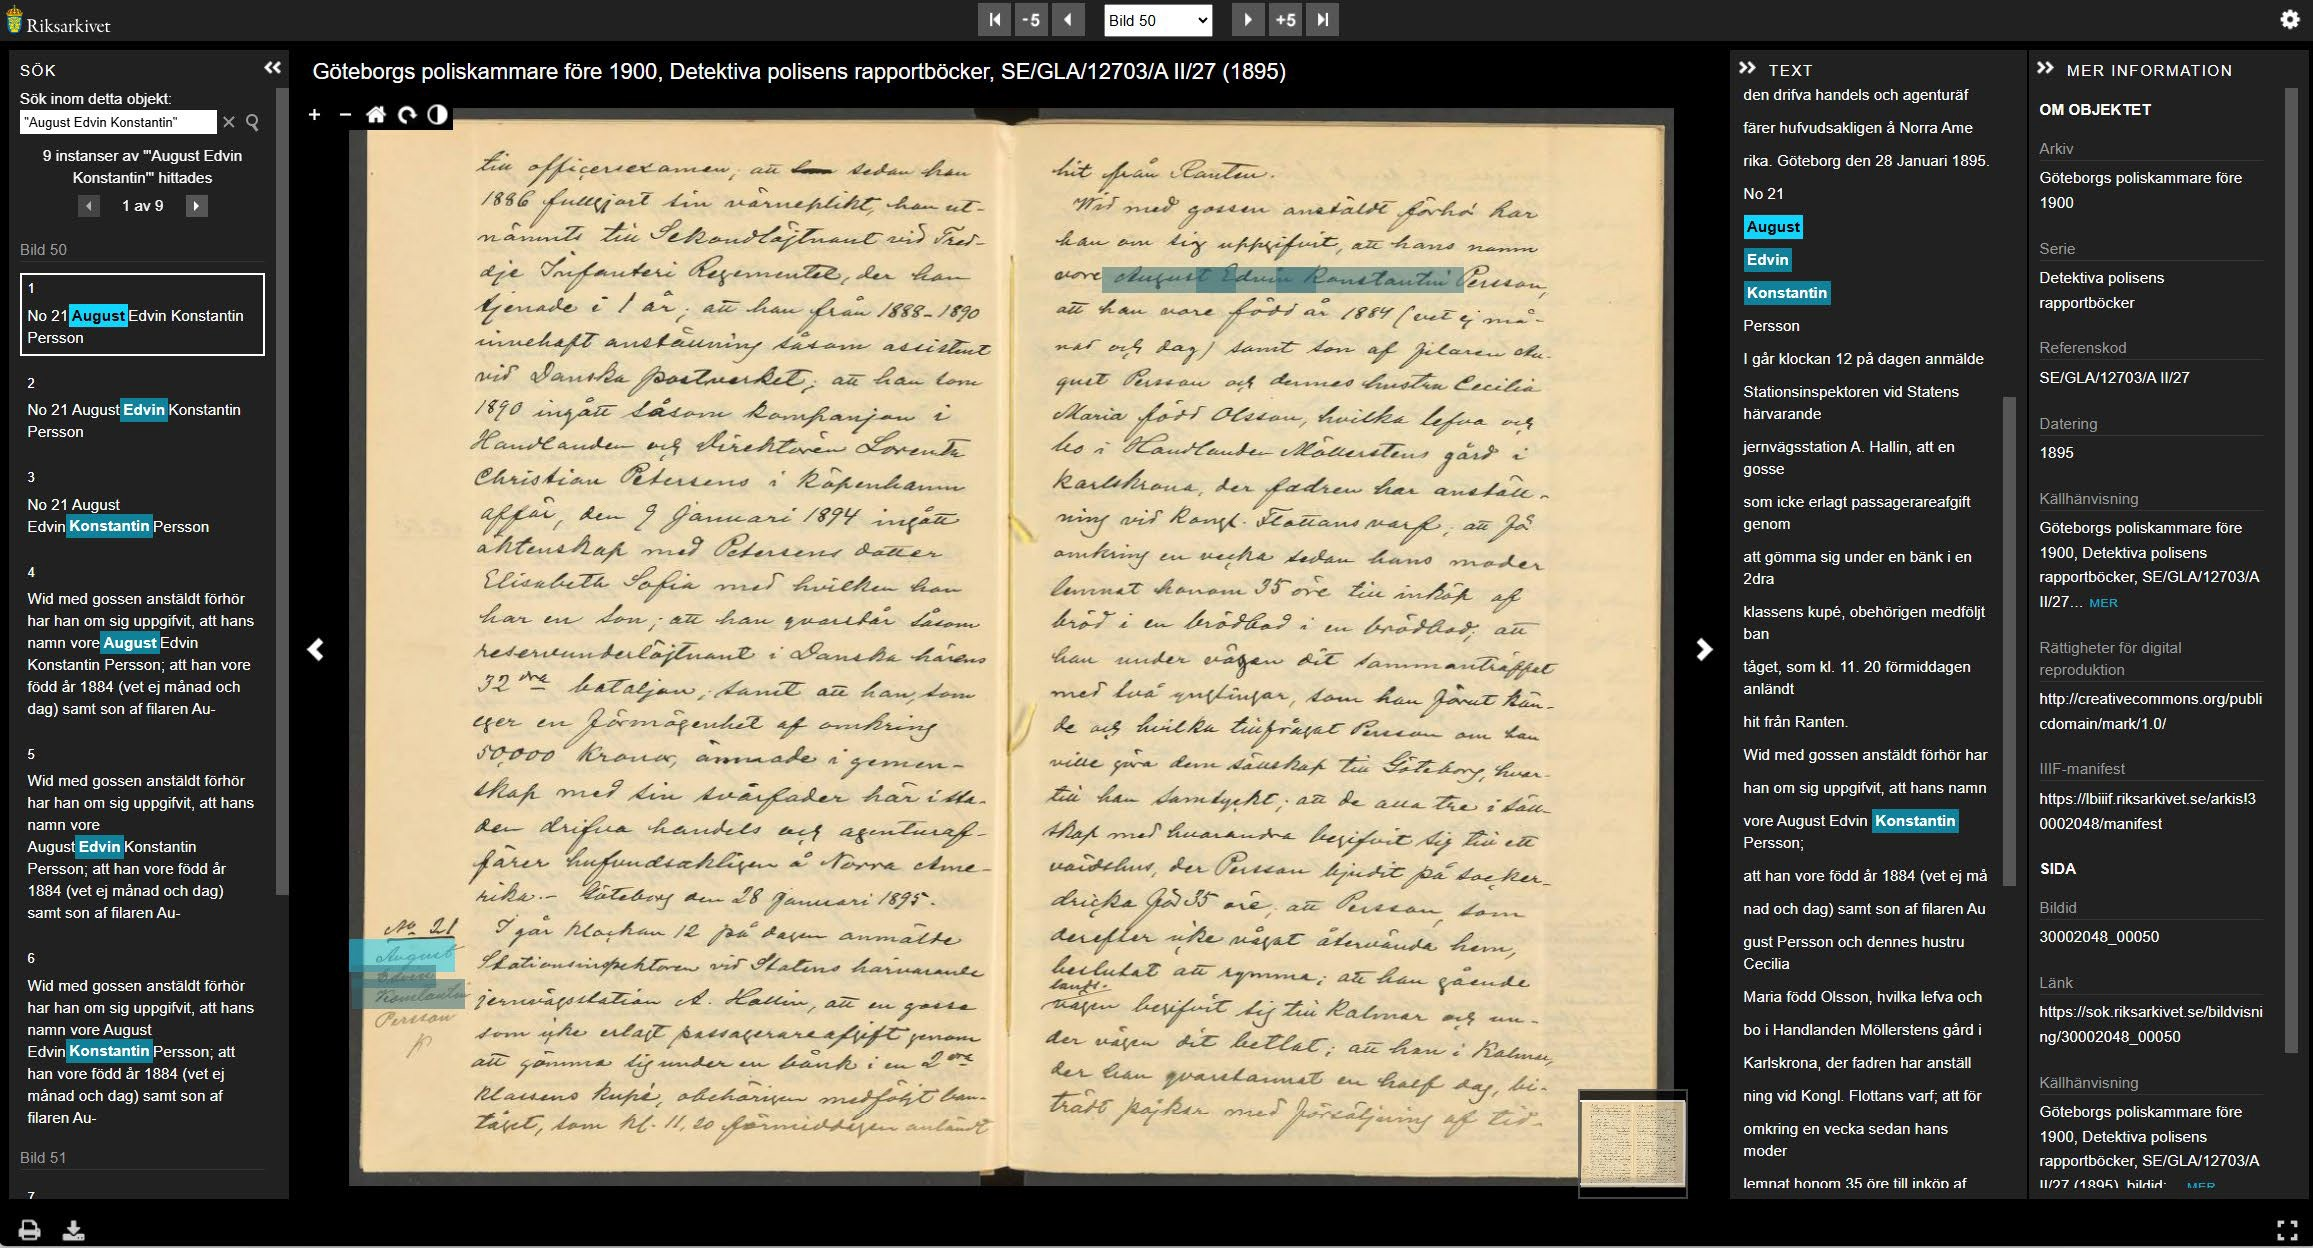 Riksarkivet
-5
Bild 50
+5
SÖK
Sök inom detta objekt:
"August Edvin Konstantin"
9 instanser av '"August Edvin
Konstantin"' hittades
1 av 9
Bild 50
1
No 21 August Edvin Konstantin
Persson
2
No 21 August Edvin Konstantin
Persson
3
No 21 August
Edvin Konstantin Persson
4
Wid med gossen anstäldt förhör
har han om sig uppgifvit, att hans
namn vore August Edvin
Konstantin Persson; att han vore
född år 1884 (vet ej månad och
dag) samt son af filaren Au-
5
Wid med gossen anstäldt förhör
har han om sig uppgifvit, att hans
namn vore
August Edvin Konstantin
Persson; att han vore född år
1884 (vet ej månad och dag)
samt son af filaren Au-
6
Wid med gossen anstäldt förhör
har han om sig uppgifvit, att hans
namn vore August
Edvin Konstantin Persson; att
han vore född år 1884 (vet ej
månad och dag) samt son af
filaren Au-
Bild 51
7
Göteborgs poliskammare före 1900, Detektiva polisens rapportböcker, SE/GLA/12703/A II/27 (1895)
till officersexamen; att sedan han
1886 fullgjort sin värneplikt, han ut-
nämnts till Sekondlöjtnant vid Tred-
dje Infanteri Regementet, der han
tjenade i 1 år; att han från 1888-1890
innehaft anställning såsom assistent
vid Danska postverket; att han som
1890 ingått såsom kompanjon i
Handlanden och Direktören Lorentz
Christian Petersens i Köpenhamn
affär, den 9 Januari 1894 ingått
äktenskap med Petersens dotter
Elisabeth Sofia med hvilken han
har en son; att han qvarstår såsom
reservunderlöjtnant i Danska härens
32dra bataljon; samt att han, som
eger en förmögenhet af omkring
50,000 Kronor, ämnade i gemen-
skap med sin svärfader här i sta-
den drifva handels och agenturaf-
färer hufvudsakligen å Norra Ame-
rika.- Göteborg den 28 Januari 1895.
No 21
August
Edvin
Konstantin
Persson
I går klockan 12 på dagen anmälde
Stationsinspektoren vid Statens härvarande
jernvägsstation A. Hallin, att en gosse
som icke erlagt passagerareafgift genom
att gömma sig under en bänk i en 2dra
klassens kupé, obehörigen medföljt ban-
tåget, som kl. 11,20 förmiddagen anländt
hit från Ranten.
Wid med gossen anstäldt förhör har
han om sig uppgifvit, att hans namn
vore August Edvin Konstantin Persson,
att han vore född år 1884 (vet ej må-
nad och dag) samt son af filaren Au-
gust Persson och dennes hustru Cecilia
Maria född Olsson, hvilka lefva och
bo i Handlanden Möllerstens gård i
Karlskrona, der fadren har anställ-
ning vid Kongl. Flottans varf; att för
omkring en vecka sedan hans moder
lemnat honom 35 öre till inköp af
bröd i en brödbod i en brödbod; att
han under vägen dit sammanträffat
med två ynglingar, som han förut kän-
de och hvilka tillfrågat Persson om han
ville göra dem sällskap till Göteborg, hvar-
till han samtyckt; att de alla tre i säll-
skap med hvarandra begifvit sig till ett
värdshus, der Persson bjudit på socker-
dricka för 35 öre; att Persson, som
derefter icke vågat återvända hem,
beslutat att rymma; att han gående
lands-
vägen begifvit sig till Kalmar och un-
der vägen dit betlat; att han i Kalmar,
der han qvarstannat en half dag, bi-
trädt pojkar med försäljning af tid-
TEXT
den drifva handels och agenturäf
färer hufvudsakligen å Norra Ame
rika. Göteborg den 28 Januari 1895.
No 21
August
Edvin
Konstantin
Persson
I går klockan 12 på dagen anmälde
Stationsinspektoren vid Statens
härvarande
jernvägsstation A. Hallin, att en
gosse
som icke erlagt passagerareafgift
genom
att gömma sig under en bänk i en
2dra
klassens kupé, obehörigen medföljt
ban
tåget, som kl. 11. 20 förmiddagen
anländt
hit från Ranten.
Wid med gossen anstäldt förhör har
han om sig uppgifvit, att hans namn
vore August Edvin Konstantin
Persson;
att han vore född år 1884 (vet ej må
nad och dag) samt son af filaren Au
gust Persson och dennes hustru
Cecilia
Maria född Olsson, hvilka lefva och
bo i Handlanden Möllerstens gård i
Karlskrona, der fadren har anställ
ning vid Kongl. Flottans varf; att för
omkring en vecka sedan hans
moder
lemnat honom 35 öre till inköp af
MER INFORMATION
OM OBJEKTET
Arkiv
Göteborgs poliskammare före
1900
Serie
Detektiva polisens
rapportböcker
Referenskod
SE/GLA/12703/A II/27
Datering
1895
Källhänvisning
Göteborgs poliskammare före
1900, Detektiva polisens
rapportböcker, SE/GLA/12703/A
II/27... MER
Rättigheter för digital
reproduktion
http://creativecommons.org/publi
cdomain/mark/1.0/
IIIF-manifest
https://lbiiif.riksarkivet.se/arkis!3
0002048/manifest
SIDA
Bildid
30002048_00050
Länk
https://sok.riksarkivet.se/bildvisni
ng/30002048_00050
Källhänvisning
Göteborgs poliskammare före
1900, Detektiva polisens
rapportböcker, SE/GLA/12703/A
II/27 (1895), bildid: ... MER